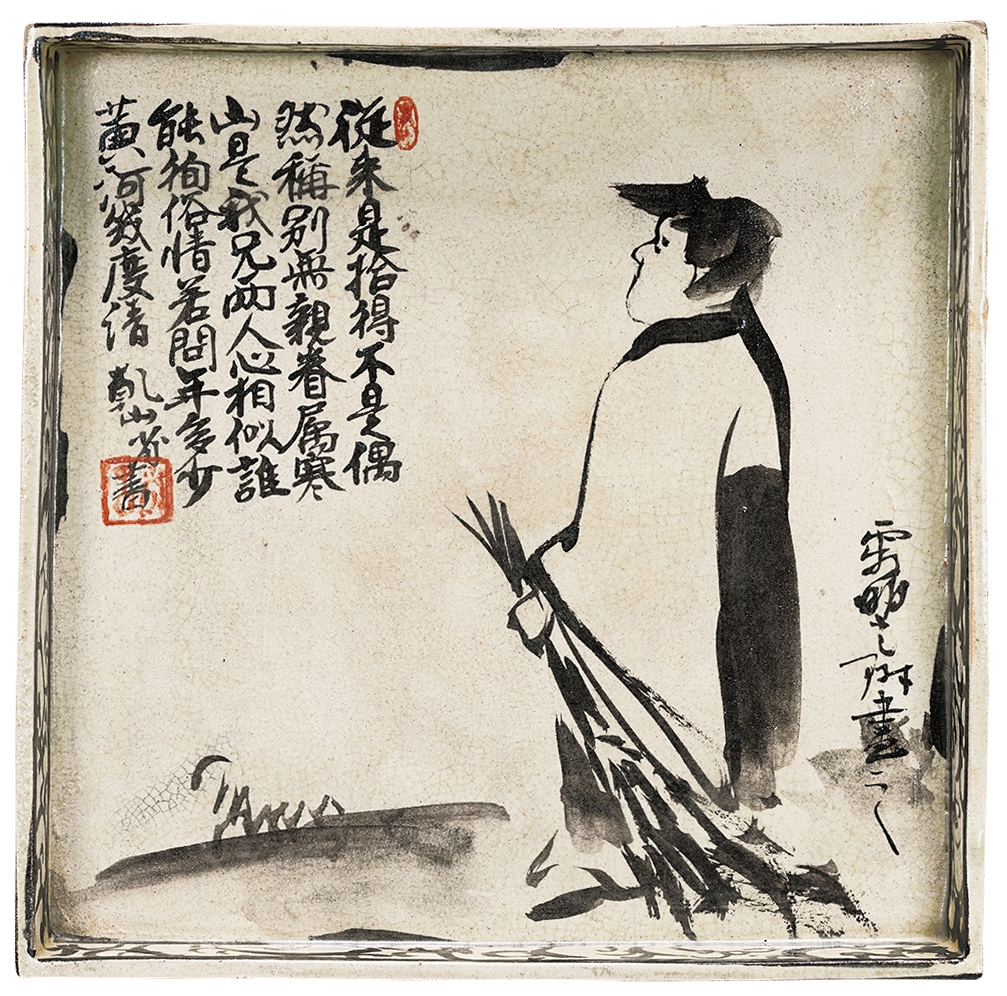 從来是拾得不是偶
然稱别無親眷属寒
山是我兄兩人心相似誰
能徇俗情若問年多少
黄河幾度清 乾山省書
寂明光琳畫之